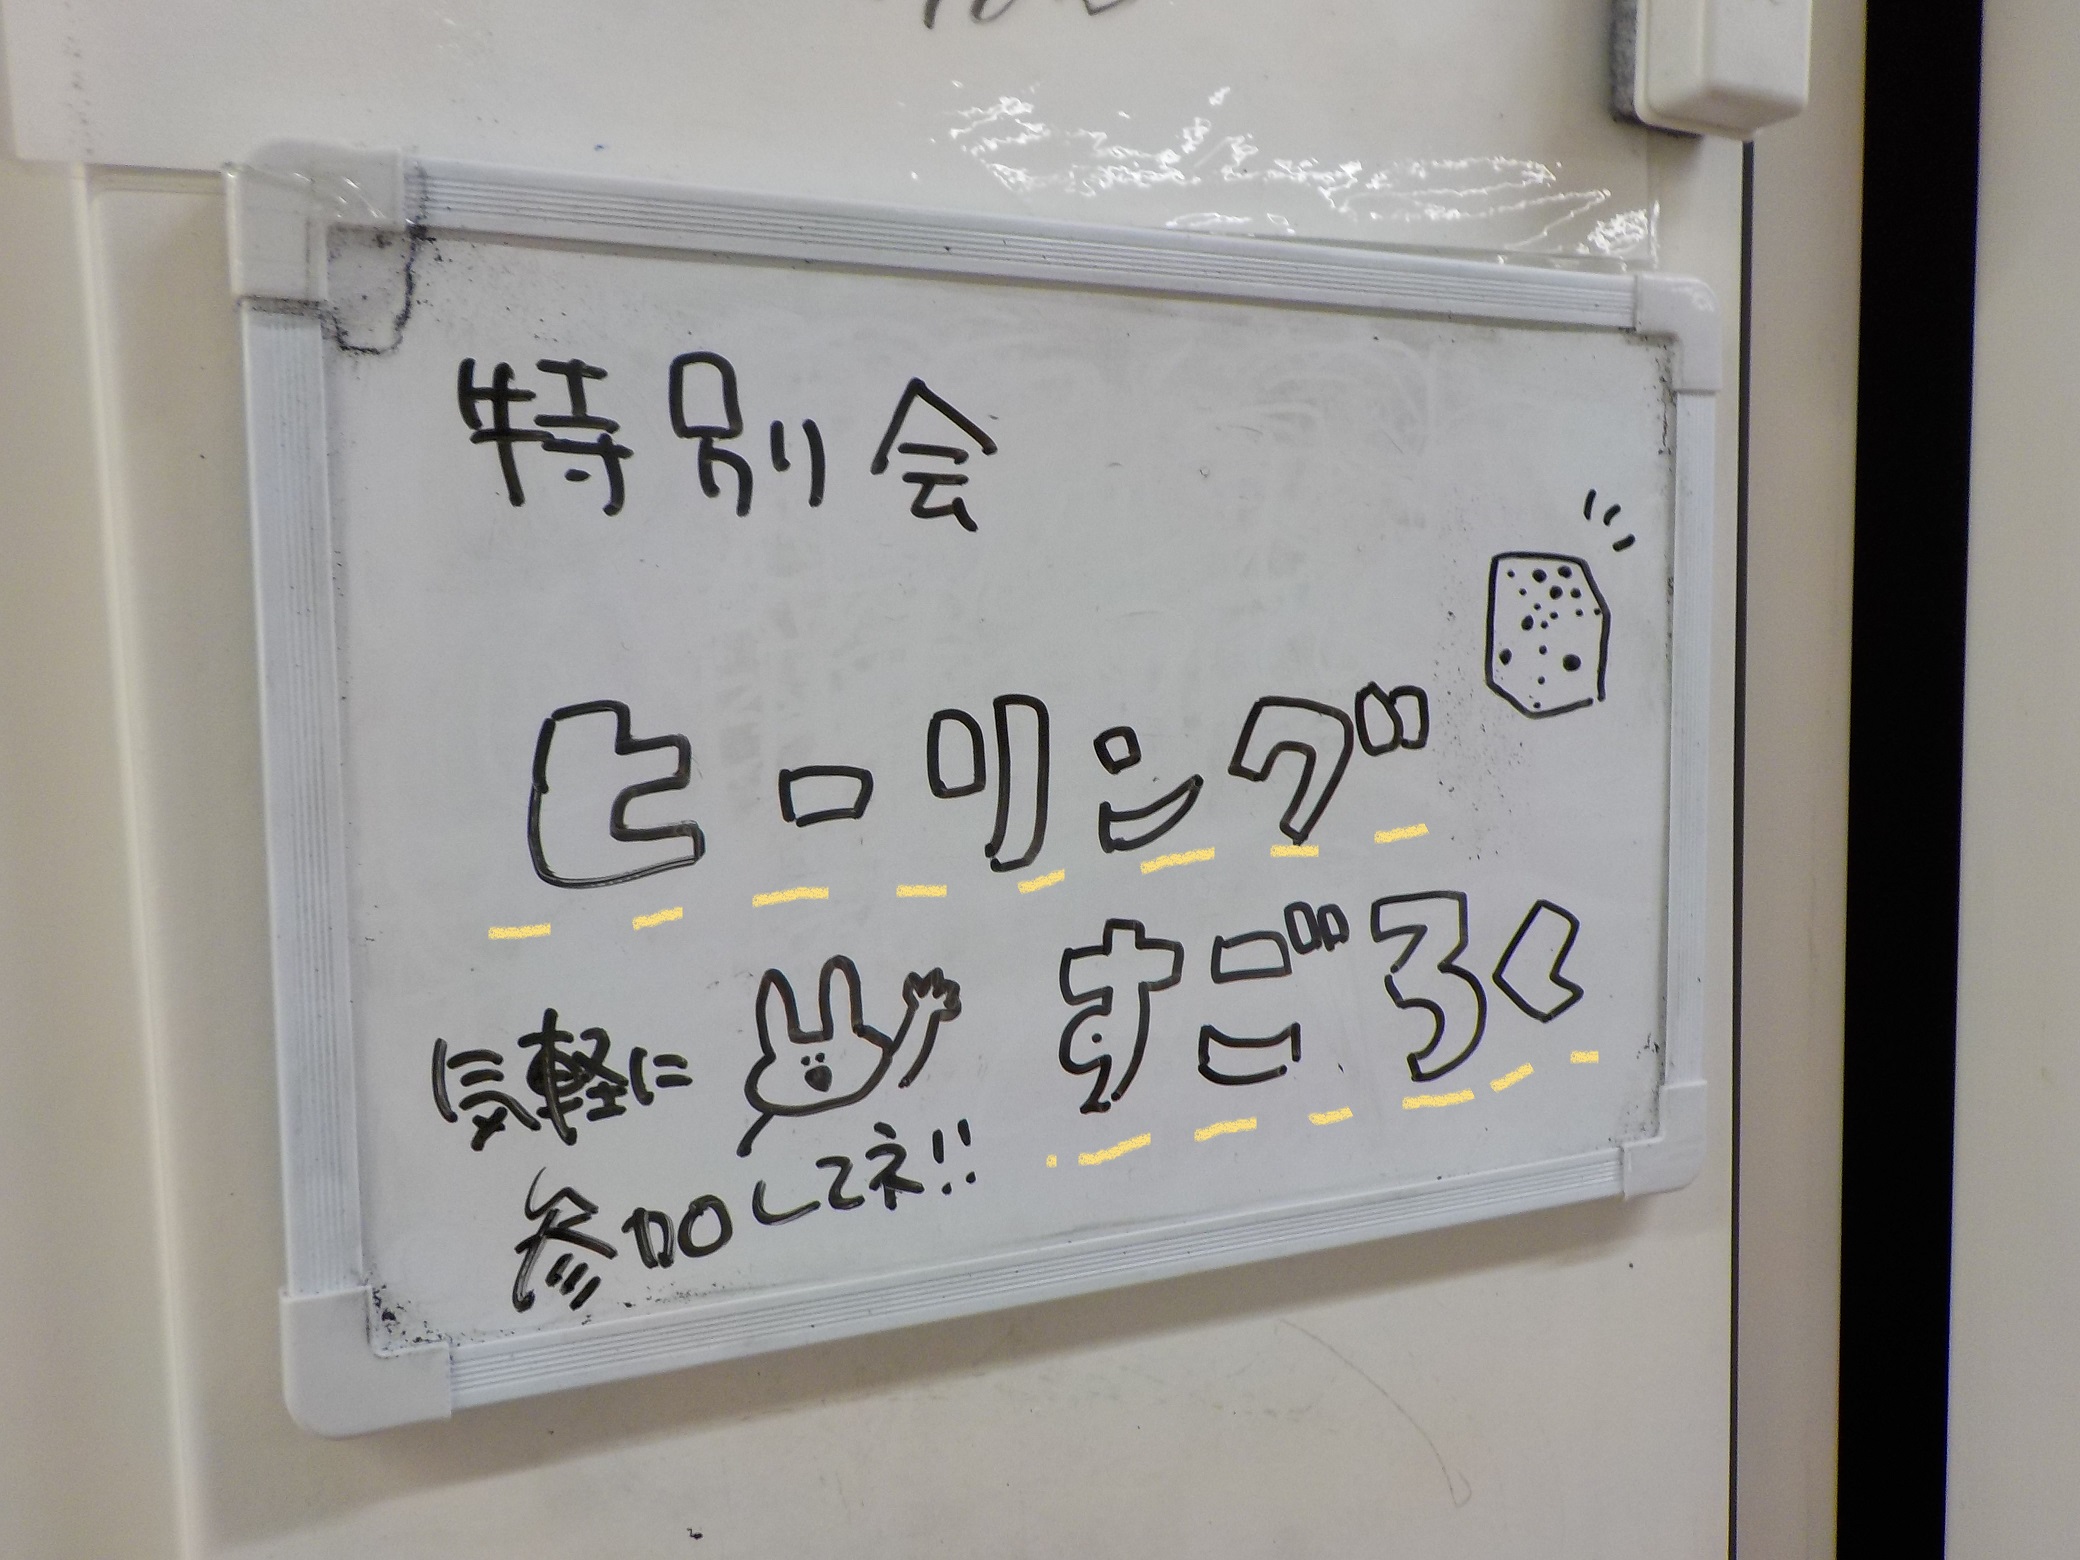 特別会
ヒーリング
すごろく
気軽に
参加してネ!!